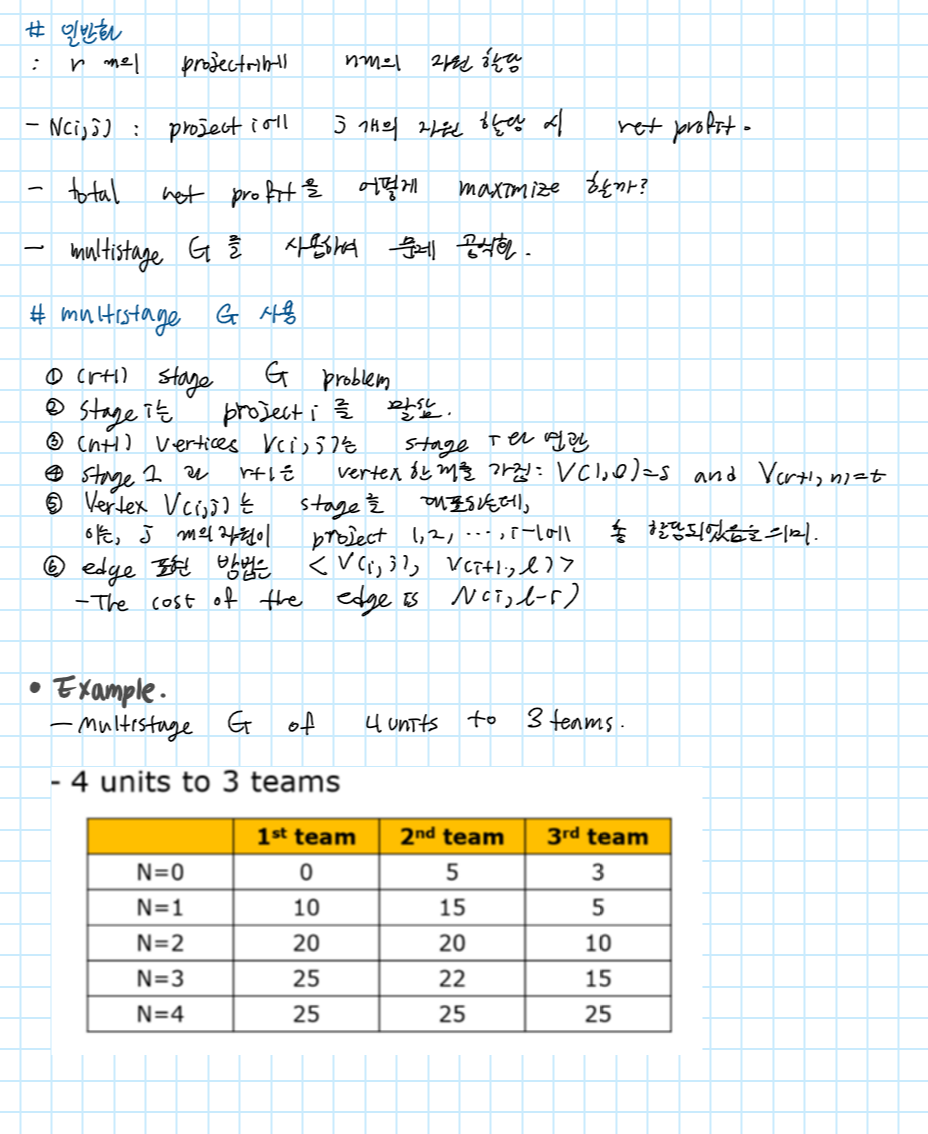 # 일반화
: r 개의 project에게 n개의 자원 할당
- N(i,j) : project i에 j 개의 자원 할당 시 net profit.
- total net profit을 어떻게 maximize 할까?
- multistage G를 사용하여 문제 공식화.
# multistage G 사용
① (r+1) stage G problem
② stage i는 project i를 말함.
③ (n+1) vertices V(i,j)는 stage i 와 연관
④ stage 1 과 r+1은 vertex 한 개를 가짐: V(1,0)=s and V(r+1,n)=t
⑤ Vertex V(i,j)는 stage를 대표하는데,
이는, j 개의 자원이 project 1,2,...,i-1에 총 할당되었음을 의미.
⑥ edge 표현 방법은 <V(i,j), V(i+1,l)>
- The cost of the edge is N(i,l-j)
• Example.
- Multistage G of 4 units to 3 teams.
- 4 units to 3 teams
1st team 2nd team 3rd team
N=0 0 5 3
N=1 10 15 5
N=2 20 20 10
N=3 25 22 15
N=4 25 25 25